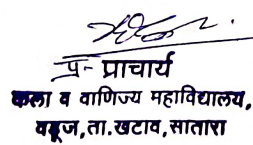 प्र- प्राचार्य
कला व वाणिज्य महाविद्यालय,
वडूज, ता.खटाव, सातारा